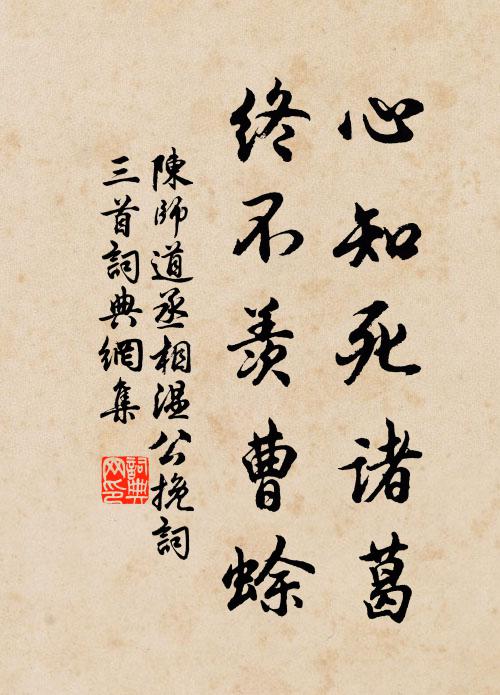 心知死诸葛
终不羡曹蜍
陳師道丞相温公挽詞
三首詞典網集
詞典网印